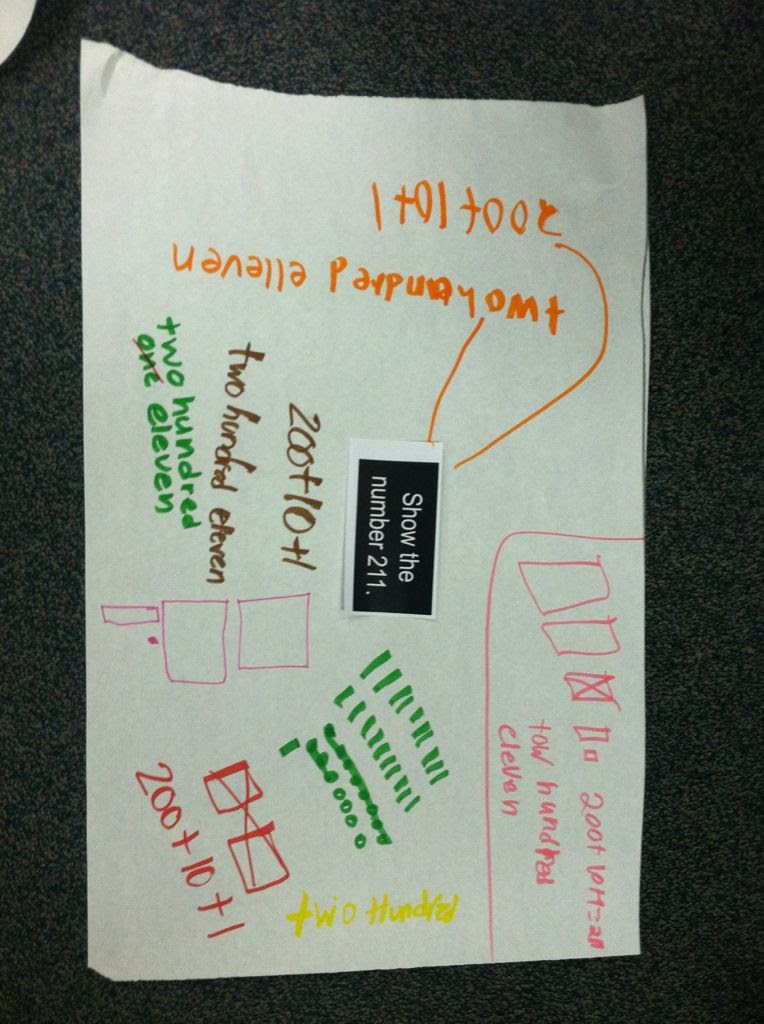 Show the
number 211.
200+10+1
two hundred elleven
200+10+1
two hundred eleven
two hundred
one eleven
200+10+1=211
tow hundred
eleven
200+10+1
two Hundred